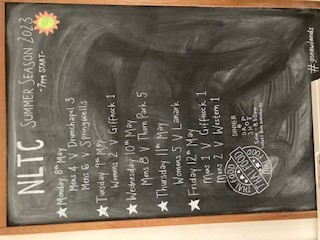 NLTC SUMMER SEASON 2023
- 7PM START -
Monday 8th May
Mens 4 V Drumchapel 3
Mens 6 V Springwells
Tuesday 9th May
Womens 2 V Giffnock 1
Wednesday 10th May
Mens 8 V Thorn Park 5
Thursday 11th May
Womens 5 V Lanark
Friday 12th May
Mens 1 V Giffnock 1
Mens 2 V Western 1
DINNER
THAI FOOD
#gonewlands